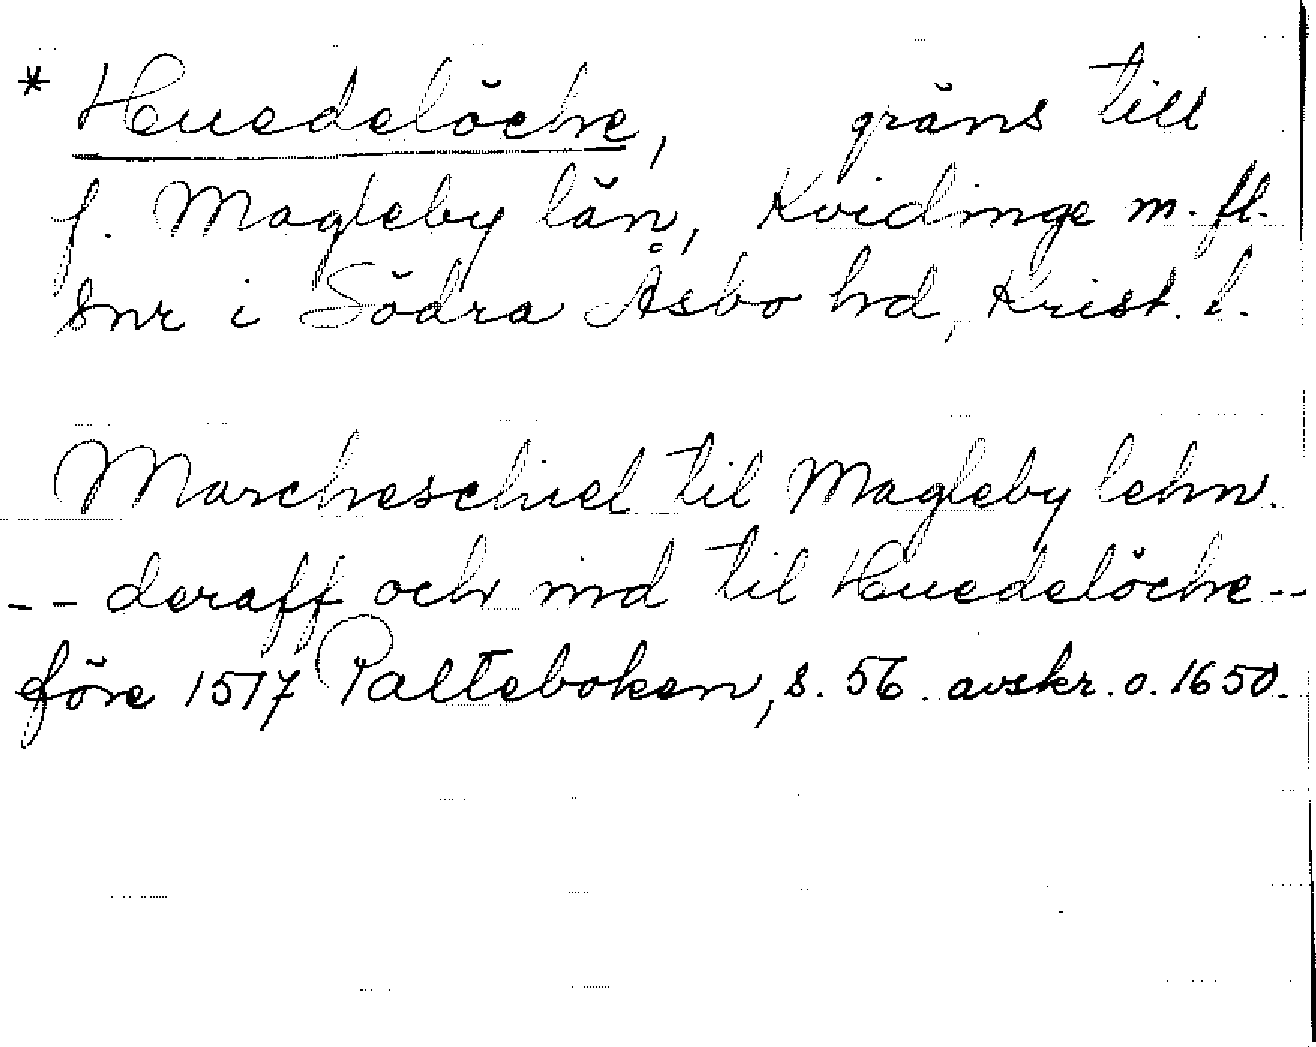 * Huedelöche, gräns till
f. Magleby län, Kvidinge m. fl.
snr i Södra Åsbo hd, Krist. l.
Marcheschiel til Magleby lehn.
-- deraff och ind til Huedelöche --
före 1517 Palteboken, s. 56. avskr. o. 1650.